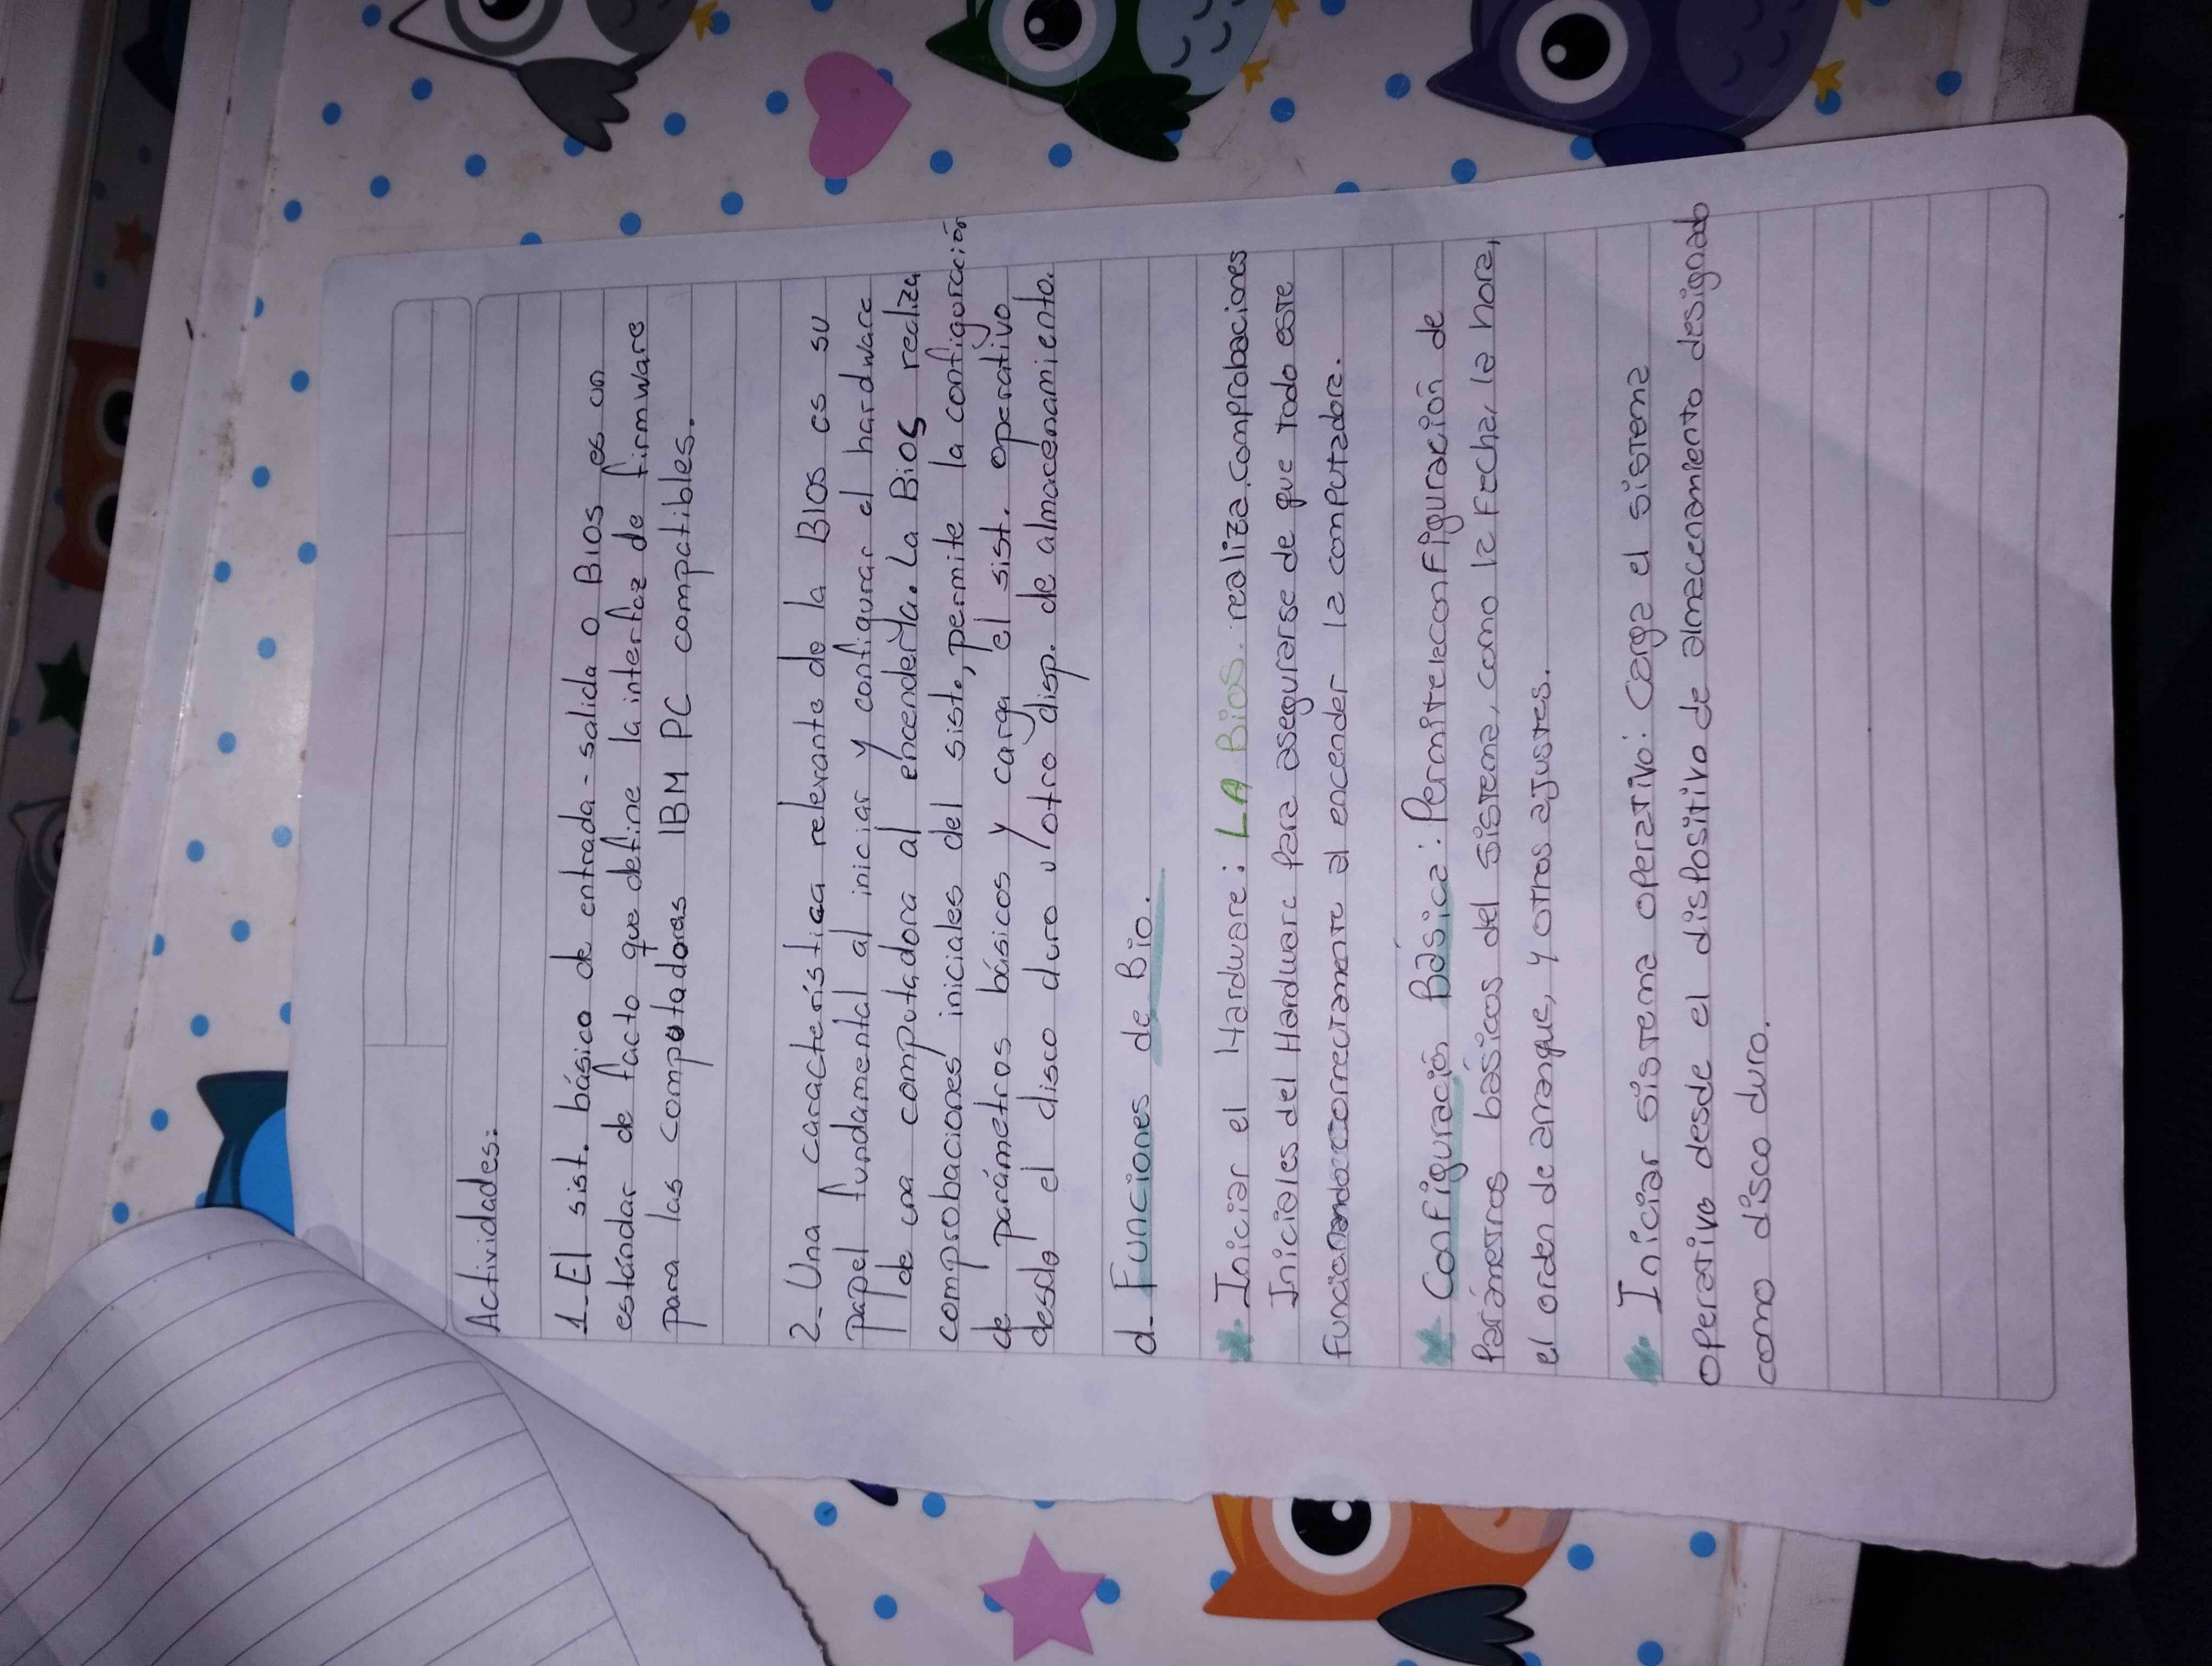 Actividades:
1_ El sist. básico de entrada-salida o BIOS es un
estándar de facto que define la interfaz de firmware
para las computadoras IBM PC compatibles.
2_ Una característica relevante de la BIOS es su
papel fundamental al iniciar y configurar el hardware
de una computadora al encenderla. La BIOS realiza
comprobaciones iniciales del sist., permite la configuración
de parámetros básicos y carga el sist. operativo
desde el disco duro u otro disp. de almacenamiento.
d- Funciones de Bio.
* Iniciar el Hardware: LA Bios. realiza comprobaciones
Iniciales del Hardware para asegurarse de que todo este
Funcionando correctamente al encender la computadora.
* Configuración Básica: Permite la configuración de
Parámetros básicos del sistema, como la Fecha, la hora,
el orden de arranque, y otros ajustes.
* Iniciar sistema operativo: Carga el sistema
operativo desde el dispositivo de almacenamiento designado
como disco duro.